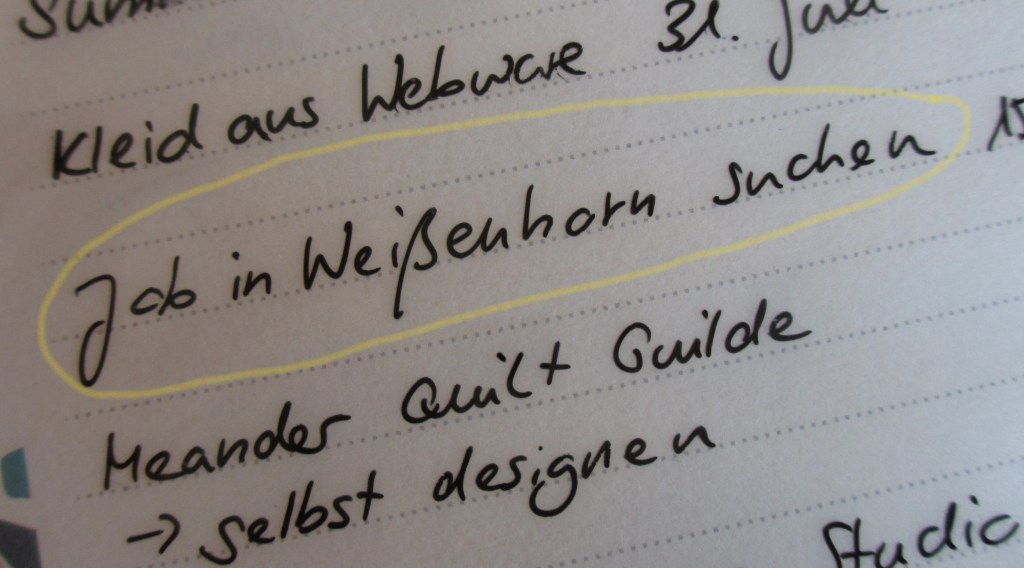 Kleid aus Webware 31. Juli
Job in Weißenhorn suchen 15
Meander Quilt Guilde
→ selbst designen
Studio